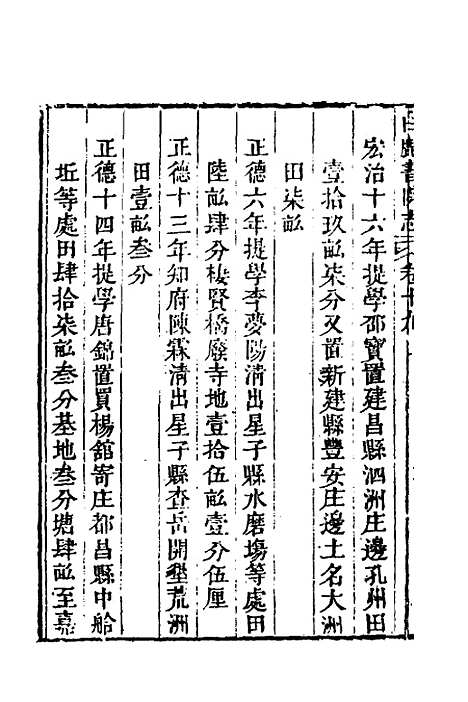 宏治十六年提學邵寶置建昌縣泗洲庄邊孔州田
壹拾玖畝柒分又置新建縣豐安庄邊土名大洲
田柒畝
正德六年提學李夢陽清出星子縣水磨塲等處田
陸畝肆分棲賢橋廢寺地壹拾伍畝壹分伍厘
正德十三年知府陳霖清出星子縣查岳開墾荒洲
田壹畝叁分
正德十四年提學唐錦置買楊舘寄庄都昌縣中舩
坵等處田肆拾柒畝叁分基地叁分塘肆畝至嘉